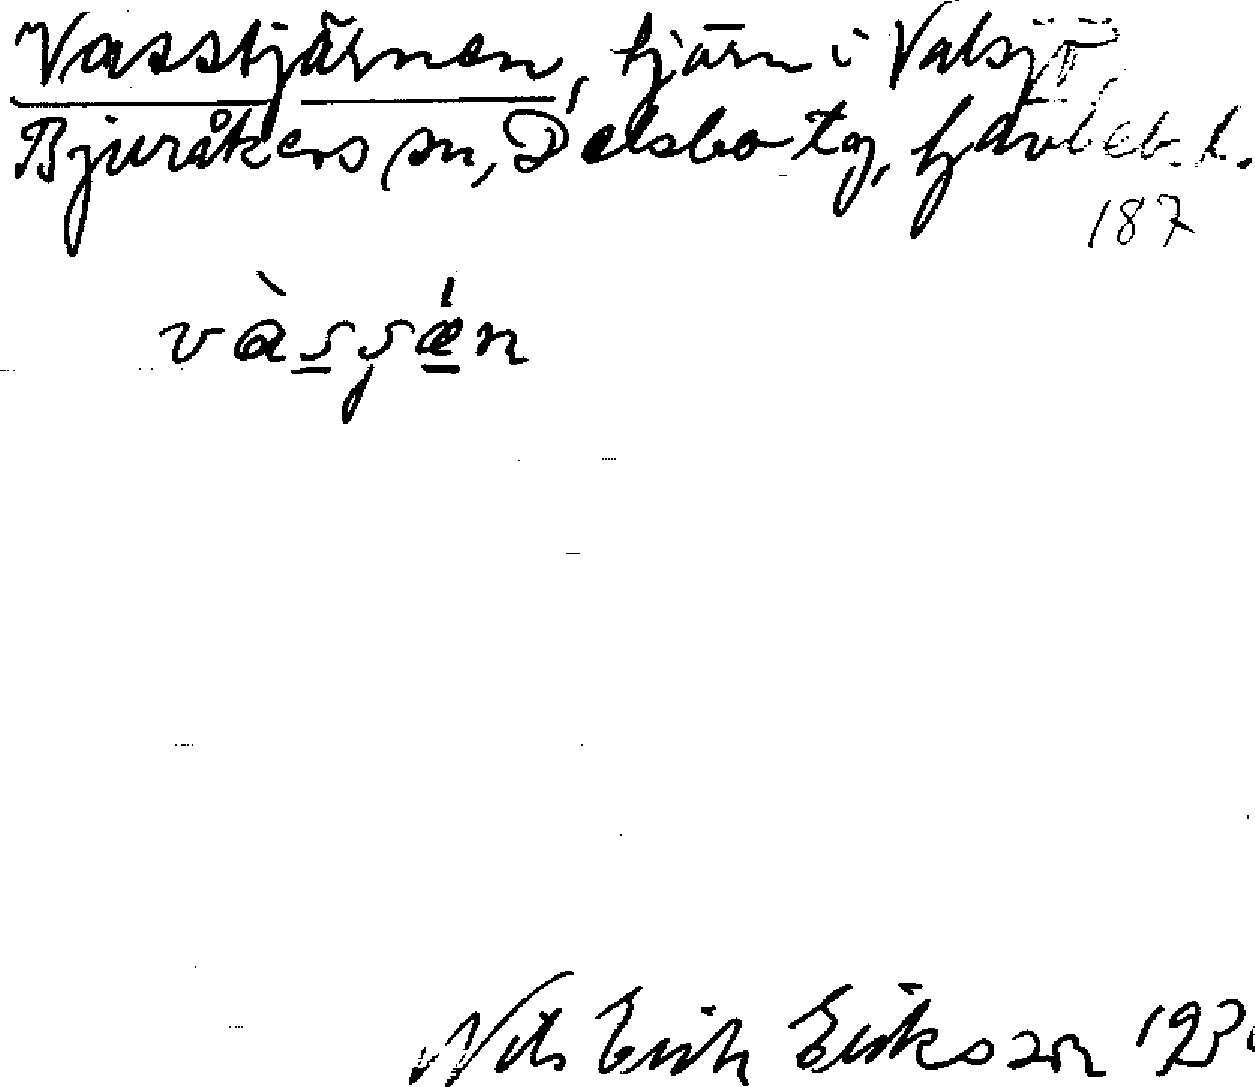 Vasstjärnen, tjärn i Valsjö,
Bjuråkers sn, Delsbo tg, Gävleb. l.
187
Nils Erik Erikson